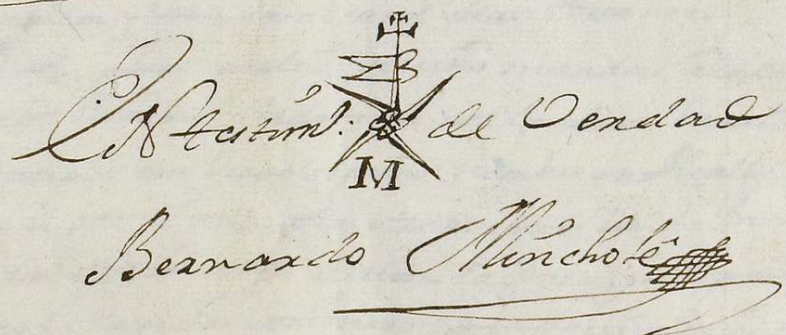 En testim.º de Verdad
M
Bernardo Minchole